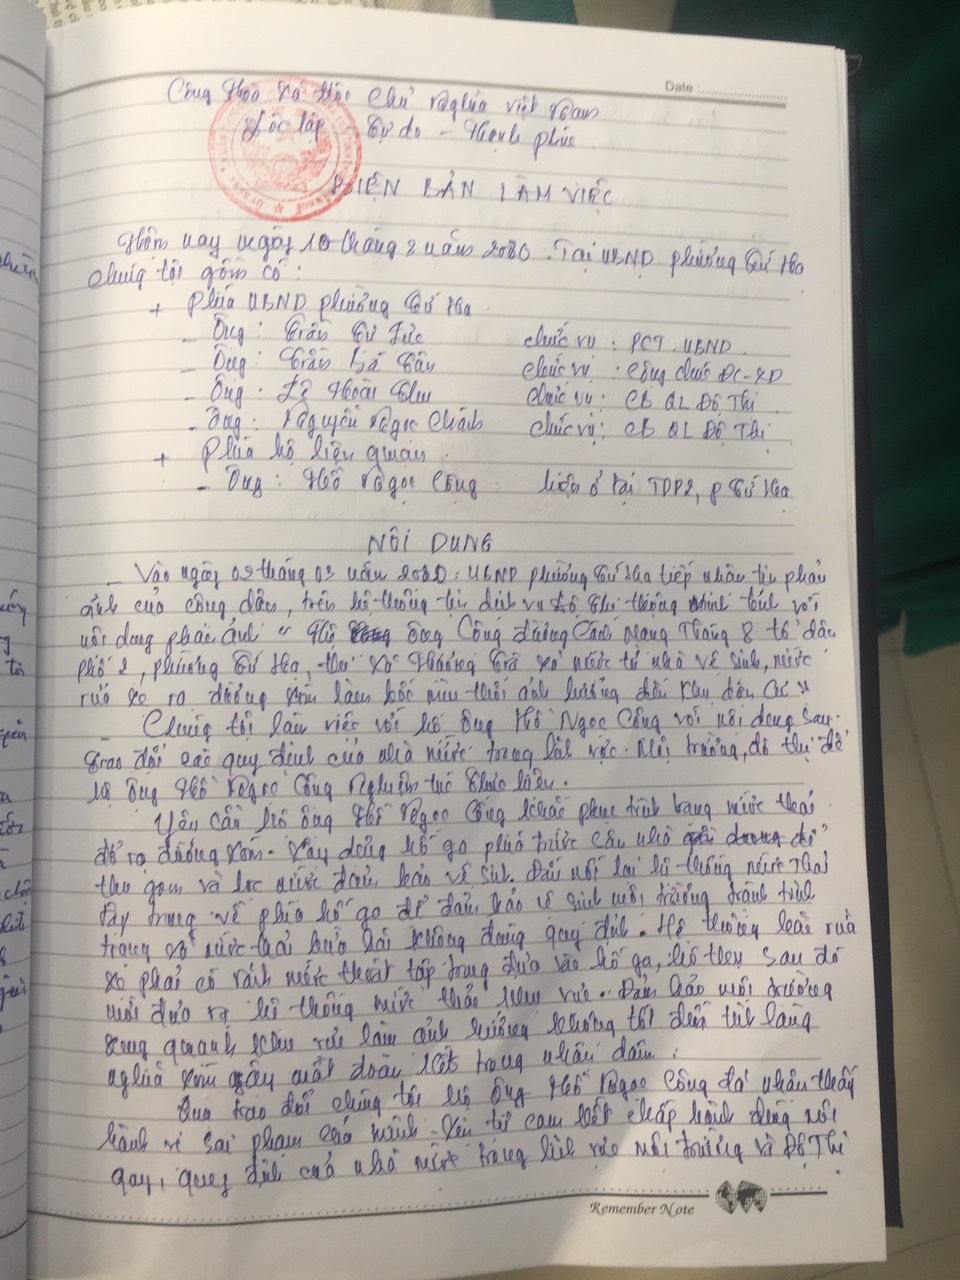 Date :
Cộng Hòa Xã Hội Chủ Nghĩa Việt Nam
Độc lập - Tự do - Hạnh phúc
BIÊN BẢN LÀM VIỆC
Hôm nay ngày 10 tháng 3 năm 2020. Tại UBND phường Tứ Hạ
chúng tôi gồm có :
+ Phía UBND phường Tứ Hạ
- Ông : Trần Tư chức vụ : PCT UBND
- Ông : Trần Bá Tân chức vụ : Công chức ĐC-XD
- Ông : Lê Hoài chức vụ : CB QL Đô Thị
- Ông : Nguyễn Ngọc Chánh chức vụ : CB QL Đô Thị
+ Phía hộ liên quan
- Ông : Hồ Ngọc Công hiện ở tại TDP2, P Tứ Hạ
NỘI DUNG
- Vào ngày 09 tháng 03 năm 2020 : UBND phường Tứ Hạ tiếp nhận tin phản
ánh của công dân, trên hệ thống dịch vụ đô thị thông minh tỉnh với
nội dung phản ánh " Hộ ông Công đường Cách Mạng Tháng 8 tổ dân
phố 2, phường Tứ Hạ, thị xã Hương Trà xả nước từ nhà vệ sinh, nước
rửa xe ra đường xóm làm bốc mùi thối ảnh hưởng đến khu dân cư "
- Chúng tôi làm việc với hộ ông Hồ Ngọc Công với nội dung sau:
Trao đổi các quy định của nhà nước trong lĩnh vực Môi trường, đô thị để
hộ ông Hồ Ngọc Công nghiêm túc thực hiện.
Yêu cầu hộ ông Hồ Ngọc Công khắc phục tình trạng nước thải
đổ ra đường xóm. Xây dựng hố ga phía trước căn nhà để
thu gom và lọc nước đảm bảo vệ sinh. Đấu nối lại hệ thống nước thải
tập trung về phía hố ga để đảm bảo vệ sinh môi trường tránh tình
trạng xả nước thải bừa bãi không đúng quy định. Hộ thường rửa
xe phải có rãnh nước thoát tập trung đưa vào hố ga, hố thu sau đó
mới đưa ra hệ thống nước thải khu vực. Đảm bảo môi trường
xung quanh khu vực làm ảnh hưởng không tốt đến tình làng
nghĩa xóm gây mất đoàn kết trong nhân dân.
Qua trao đổi chúng tôi hộ ông Hồ Ngọc Công đã nhận thấy
hành vi sai phạm của mình. Xin tự cam kết chấp hành đúng nội
quy, quy định của nhà nước trong lĩnh vực môi trường và Đô Thị
Remember Note